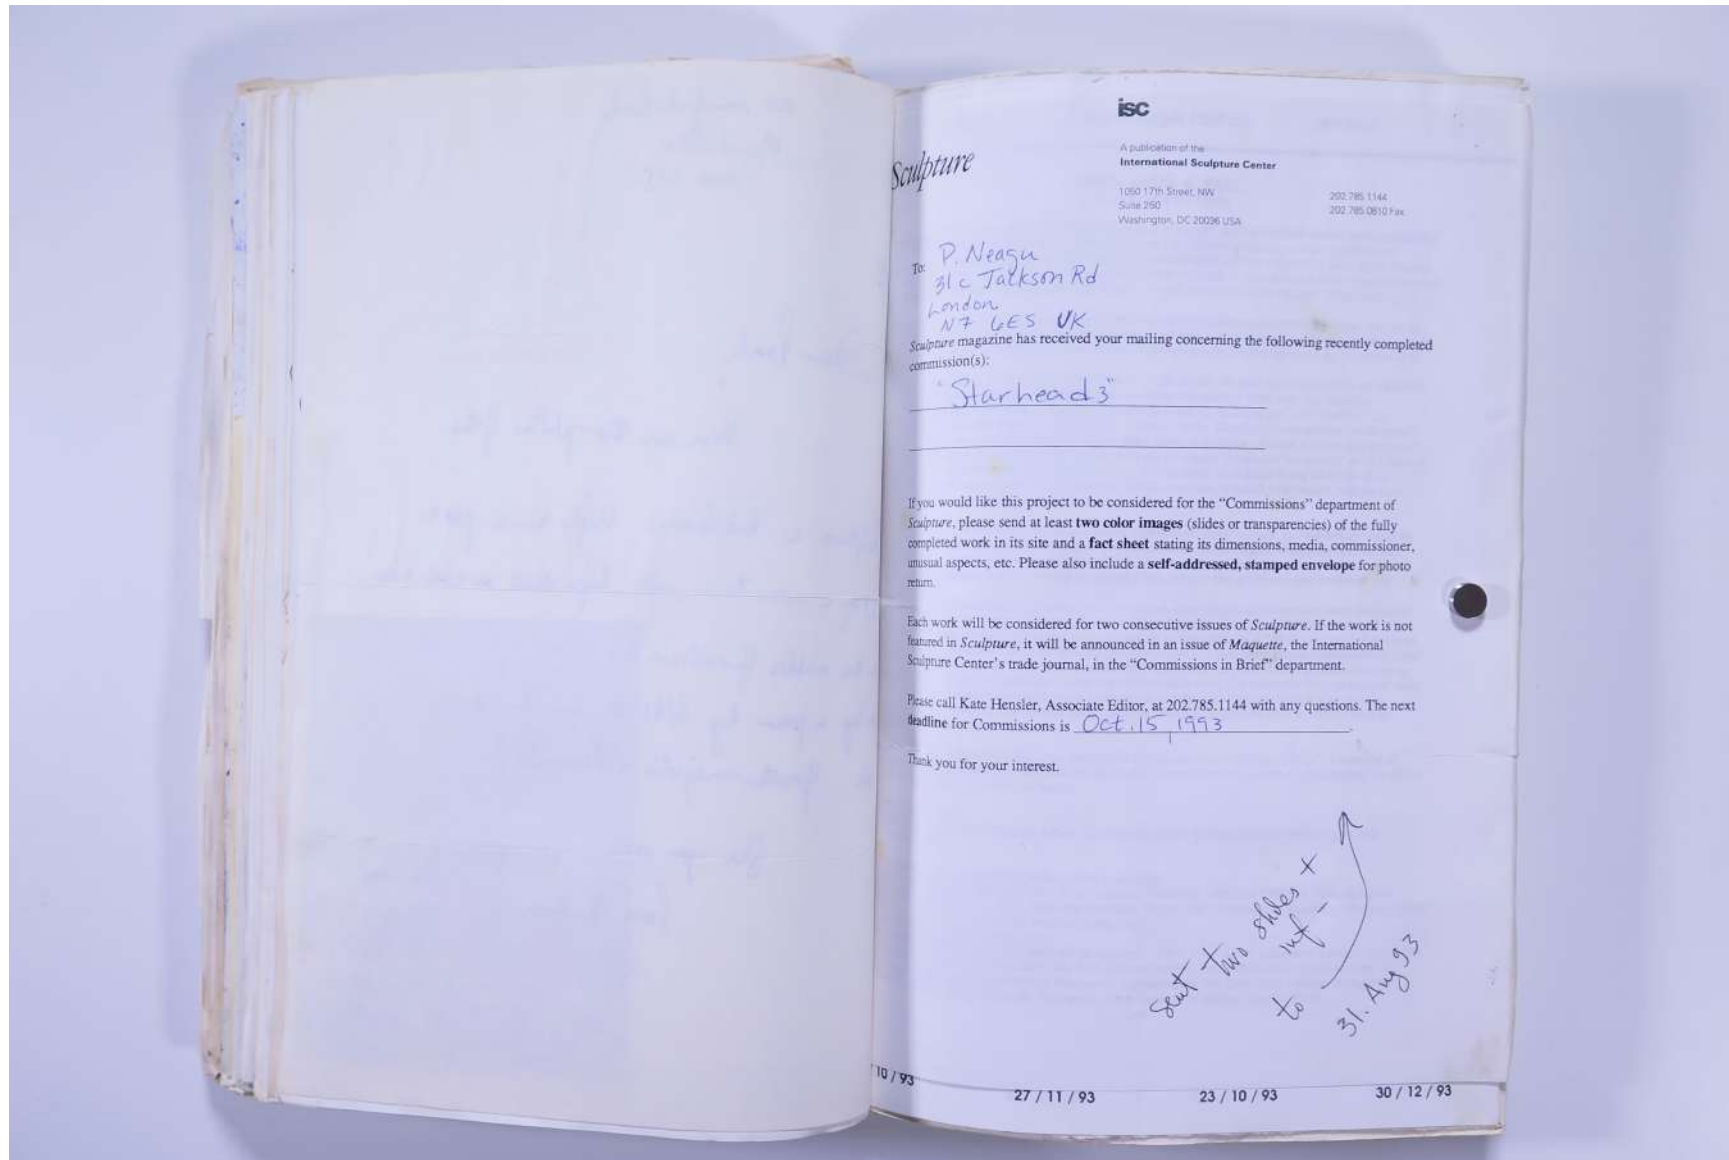 isc
Sculpture
A publication of the
International Sculpture Center
1050 17th Street, NW
Suite 250
Washington, DC 20036 USA
202.785.1144
202.785.0810 Fax
To: P. Neagu
31c Jackson Rd
London
N7 6ES UK
Sculpture magazine has received your mailing concerning the following recently completed
commission(s):
"Starhead3"
If you would like this project to be considered for the “Commissions” department of
Sculpture, please send at least two color images (slides or transparencies) of the fully
completed work in its site and a fact sheet stating its dimensions, media, commissioner,
unusual aspects, etc. Please also include a self-addressed, stamped envelope for photo
return.
Each work will be considered for two consecutive issues of Sculpture. If the work is not
featured in Sculpture, it will be announced in an issue of Maquette, the International
Sculpture Center's trade journal, in the “Commissions in Brief” department.
Please call Kate Hensler, Associate Editor, at 202.785.1144 with any questions. The next
deadline for Commissions is Oct. 15, 1993.
Thank you for your interest.
sent two slides +
inf -
to
31. Aug 93
10 / 93
27 / 11 / 93
23 / 10 / 93
30 / 12 / 93